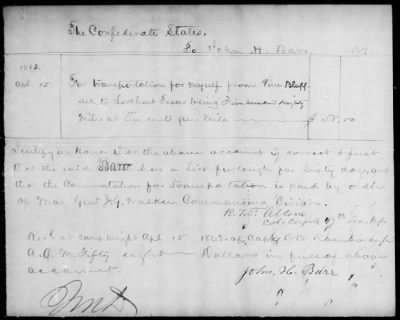 The Confederate States.
To John H. Barr, Dr.
1863.
Apl. 15 For transportation for myself from Pine Bluff
Ark to Lockhart Texas being Five hundred & eighty
Miles at Ten cents per Mile $ 58.00
I certify on Honor that the above account is correct & just
that the said Barr has a Sick furlough for Sixty days, and
that the Commutation for Transportation is paid by order
of Maj. Genl J.G. Walker Commanding Division.
R. T. P. Allen
Col. Comdg 17th Texas
Recd at camp wright Apl 15 1863. of Capt
A. Q. M. Fifty eight Dollars in full of above
account.
John. H. Barr